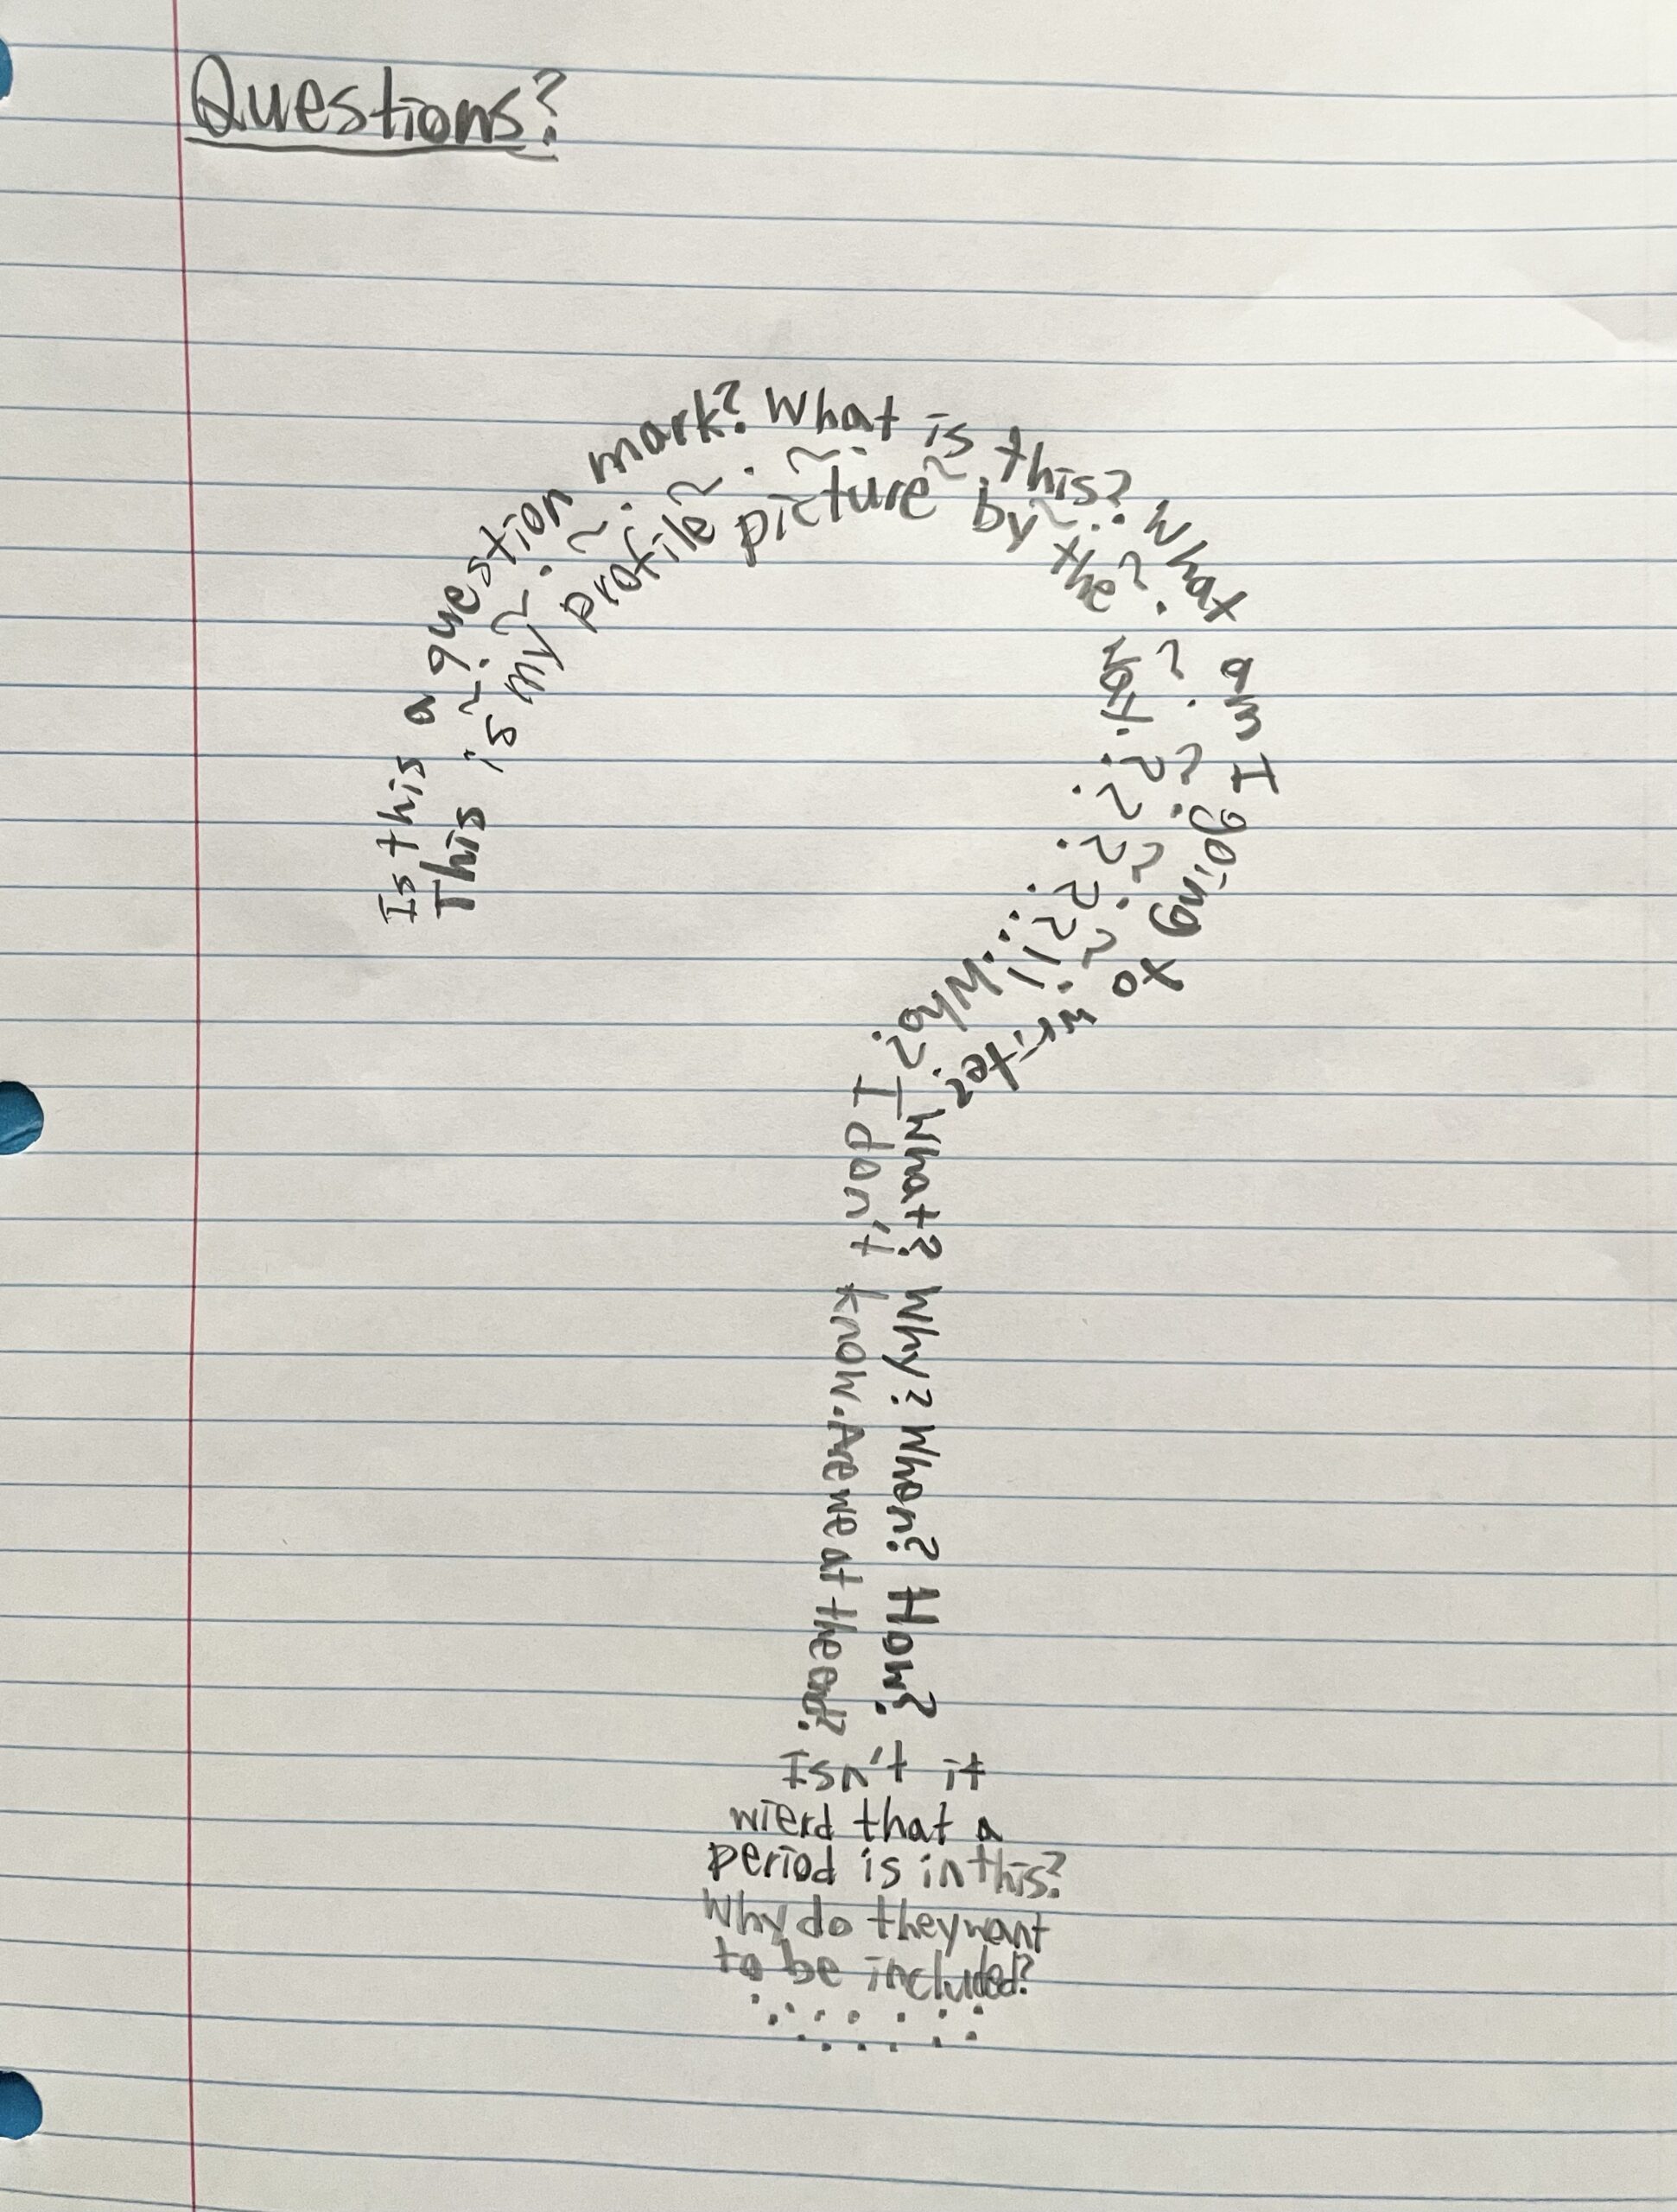 Questions?
Is this a question mark? What is this? What am I going to write? What? Why? When? How?
? ? ? ? ? ? ? ? ? ? ? ? ?
This is my profile picture by the way. ? ? ? ? ? Who? I don't know. Are we at the end?
Isn't it
wierd that a
period is in this?
Why do they want
to be included?
. . . . . . . . . . . . . . .